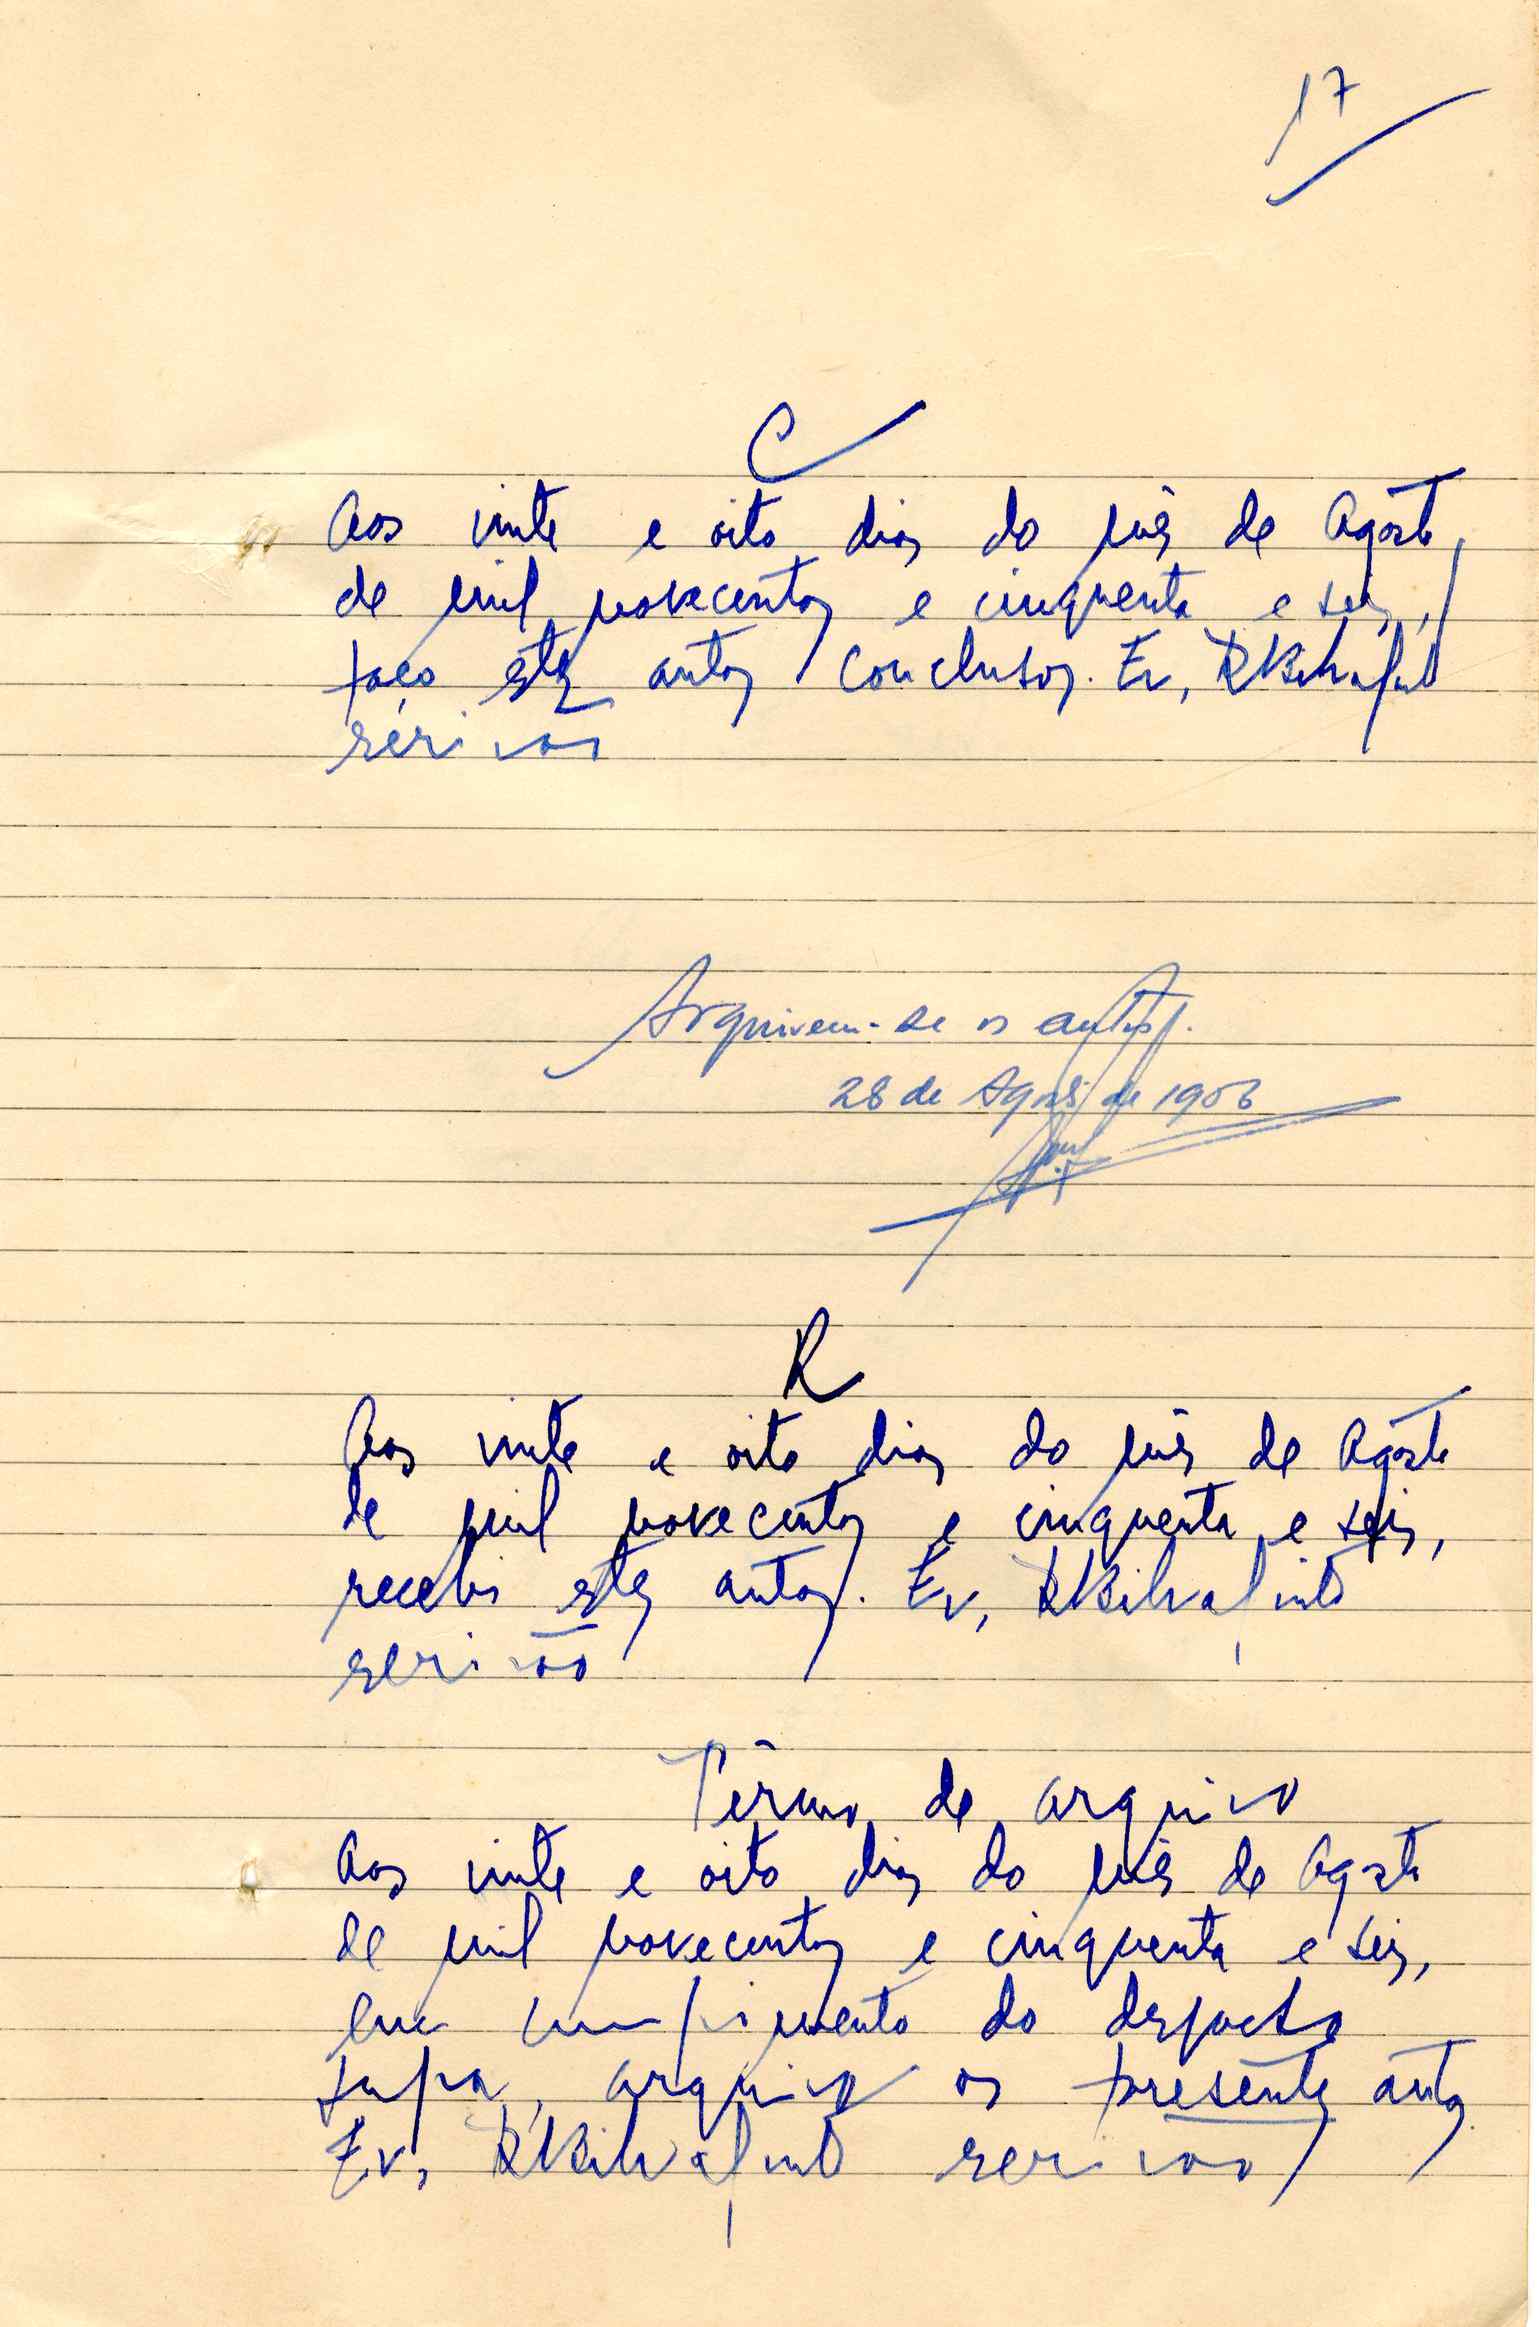 17
C
Aos vinte e oito dias do mês de Agôsto
de mil novecentos e cinquenta e seis,
faço êstes autos conclusos. Eu,
escrivão
Arquivem-se os autos.
28 de Agosto de 1956
R
Aos vinte e oito dias do mês de Agôsto
de mil novecentos e cinquenta e seis,
recebi estes autos. Eu,
escrivão
Têrmo de arquivo
Aos vinte e oito dias do mês de Agosto
de mil novecentos e cinquenta e seis,
em cumprimento do despacho
supra, arquivo os presentes autos.
Eu, escrivão